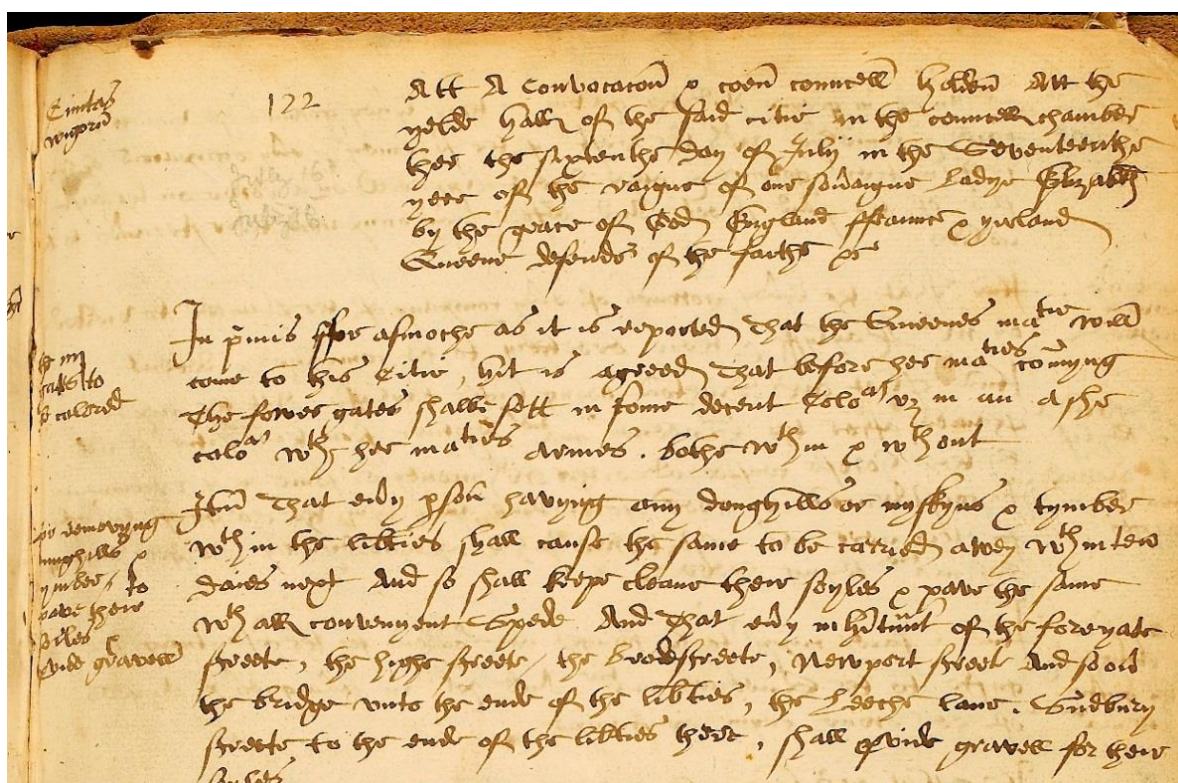 Civitas
wigorn
122
Att A Convocacon & coen councell holden Att the
yelde hall of the said citie in the councell chamber
her the sixtenthe day of July in the Seventeenthe
yere of the raigne of our sovaigne Ladye Elizabeth
by the grace of God England ffraunce & yreland
Queene defender of the faithe &c
In pmis ffor asmoche as it is reported That the Queenes matie will
come to this Citie, hit is agreed That before her maties comyng
The fower gates shalbe sett in some decent Color vz in an ashe
color wth her maties armes. bothe wthin & wthout
gates to
be colored
Itm That evy pson havyng any donghills or myskyns & tymber
wthin the libties shall cause the same to be carried awey wthin ten
daies next And so shall kepe cleane their soyles & pave the same
wth all convenyent Spede And That evy inhitunt of the foreyate
streete, the highe streete, the Brodestreete, Newport streete And so on
the bridge unto the ende of the libties, the Leeche lane. Sudbury
streete to the ende of the libties there, shall pvide gravell for their
soyles
for removyng
dunghills &
tymber, to
pave their
soiles &
pvide gravell